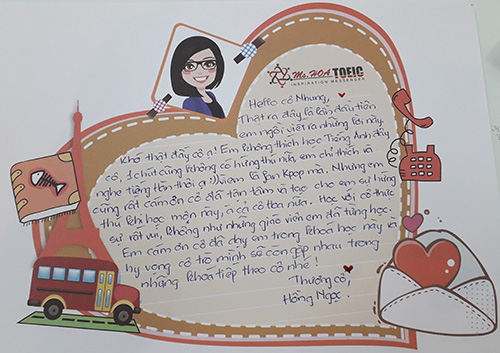 Ms. HOA TOEIC
INSPIRATION MESSENGER
Hello cô Nhung,
Thật ra đây là lần đầu tiên
em ngồi viết ra những lời này.
Khó thật đấy cô ạ! Em không thích học Tiếng Anh đây
cô, 1 chút cũng không có hứng thú nữa, em chỉ thích và
nghe tiếng Hàn thôi ạ! Vì em là fan Kpop mà. Nhưng em
cũng rất cảm ơn cô đã tận tâm và tạo cho em sự hứng
thú khi học môn này, à cả cô Hoa nữa. Học với cô thực
sự rất vui, không như những giáo viên em đã từng học.
Em cảm ơn cô đã dạy em trong khoá học này và
hy vọng cô trò mình sẽ còn gặp nhau trong
những khoá tiếp theo cô nhé!
Thương cô,
Hồng Ngọc.